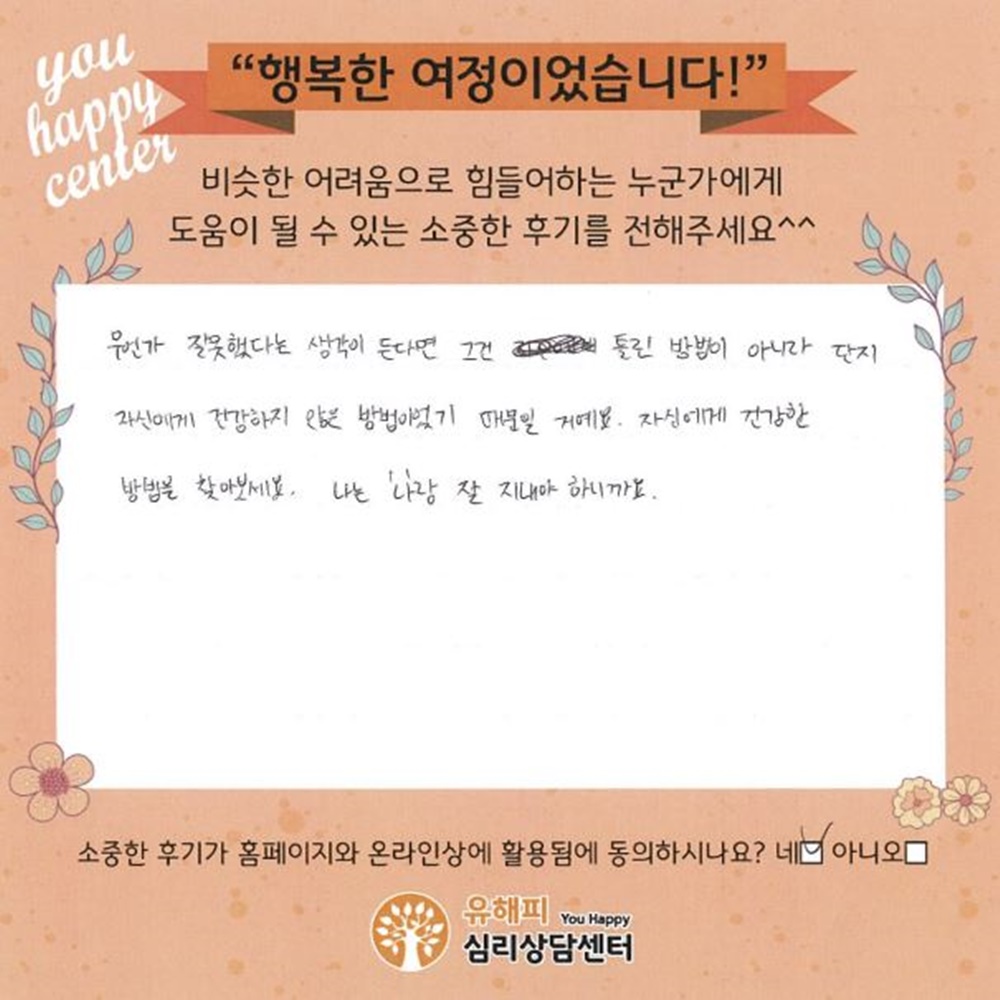 you
happy
center
“행복한 여정이었습니다!”
비슷한 어려움으로 힘들어하는 누군가에게
도움이 될 수 있는 소중한 후기를 전해주세요^^
무언가 잘못했다는 생각이 든다면 그건 틀린 방법이 아니라 단지
자신에게 건강하지 않은 방법이었기 때문일 거예요. 자신에게 건강한
방법을 찾아보세요. 나는 '나'랑 잘 지내야 하니까요.
소중한 후기가 홈페이지와 온라인상에 활용됨에 동의하시나요? 네 아니오
유해피 You Happy
심리상담센터